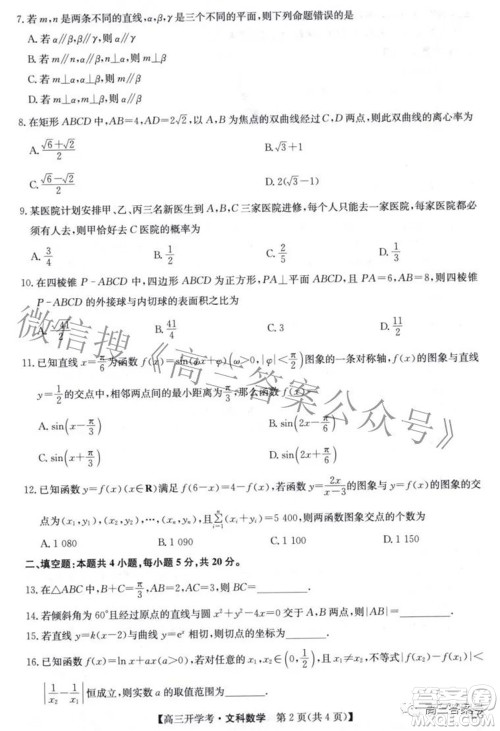 7.若m,n是两条不同的直线,α,β,γ是三个不同的平面,则下列命题错误的是
A.若α∥β,β∥γ,则α∥γ
B.若m∥n,n⊥α,m⊥β,则α∥β
C.若m⊥α,n⊥β,α∥β,则m∥n
D.若m⊥α,α⊥β,则m∥β
8.在矩形ABCD中,AB=4,AD=2√2,以A,B为焦点的双曲线经过C,D两点,则此双曲线的离心率为
A.(√6+√2)/2 B.√3+1
C.(√6-√2)/2 D.2(√3-1)
9.某医院计划安排甲、乙、丙三名新医生到A,B,C三家医院进修,每个人只能去一家医院,每家医院都必须有人去,则甲恰好去C医院的概率为
A.3/4 B.1/3 C.2/5 D.1/2
10.在四棱锥P-ABCD中,四边形ABCD为正方形,PA⊥平面ABCD,且PA=6,AB=8,则四棱锥P-ABCD的外接球与内切球的表面积之比为
A.√41/2 B.41/4 C.3 D.11/2
11.已知直线x=π/6为函数f(x)=sin(ωx+φ)(ω>0,|φ|<π/2)图象的一条对称轴,f(x)图象与直线
y=1/2的交点中,相邻两点间的最小距离为π/3,那么函数f(x)=
A.sin(x-π/3) B.sin(2x+π/6)
C.sin(x+π/3) D.sin(2x-π/6)
12.已知函数y=f(x)(x∈R)满足f(6-x)=4-f(x),若函数y=f(x)与y=2x/(x-3)的图象的交点为(x₁,y₁),(x₂,y₂),…,(xₙ,yₙ),且∑(xᵢ)=5 400,则函数y=f(x)与y=2x/(x-3)的图象的交点个数为
A.1 080 B.1 180 C.1 800 D.1 980
二、填空题:本题共4小题,每小题5分,共20分。
13.在△ABC中,B+C=π/3,b=2,c=3,则a=
14.若倾斜角为60°且经过原点的直线与圆x²+y²-2x=0交于A,B两点,则|AB|=
15.若直线y=k(x-2)与曲线y=eˣ相切,则切点的坐标为
16.已知函数f(x)=ln x+ax(a>0),若对任意两个不等的正实数
恒成立,则实数a的取值范围是
【高三开学考·文科数学 第2页(共4页)】
微信搜《高三答案公众号》
高三答案